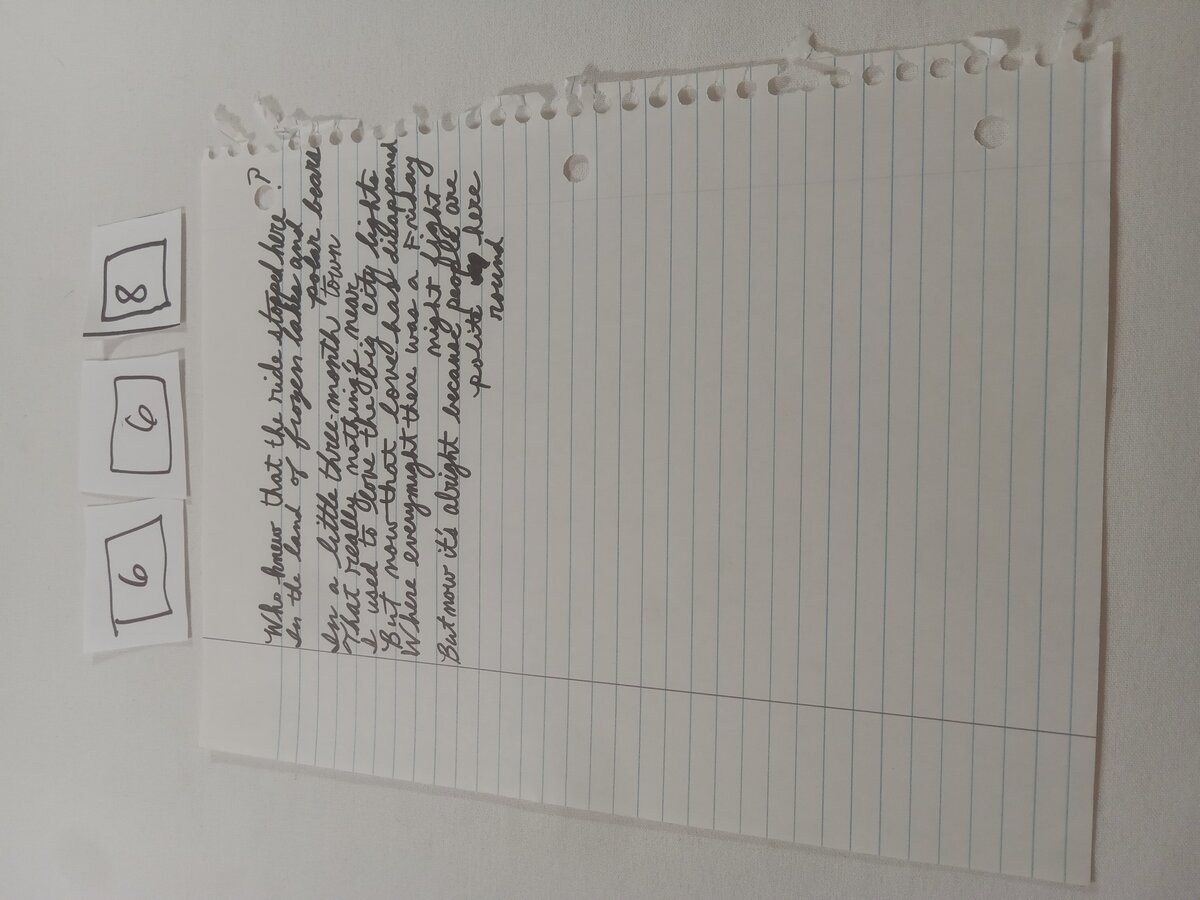 6 6 8
Who knew that the ride stopped here?
In the land of frozen lakes and
polar bears
In a little three-month town
That really nothing's near
I used to love the big city lights
But now that love has disappeared
Where everynight there was a Friday
night fight
But now it's alright because people are
polite here
round